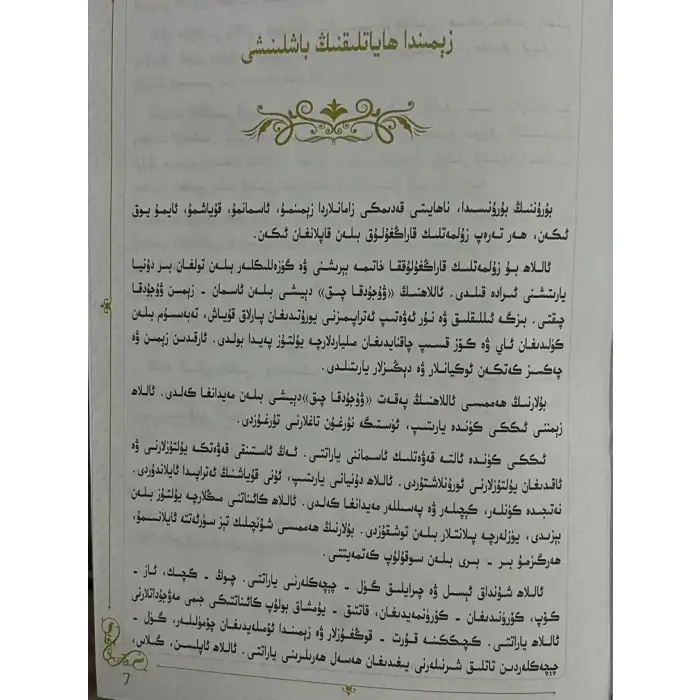 زېمىندا ھاياتلىقنىڭ باشلىنىشى
بۇرۇننىڭ بۇرۇنىسىدا، ناھايىتى قەدىمكى زامانلاردا زېمىنمۇ، ئاسمانمۇ، قۇياشمۇ، ئايمۇ يوق
ئىكەن، ھەر تەرەپ زۇلمەتلىك قاراڭغۇلۇق بىلەن قاپلانغان ئىكەن.
ئاللاھ بۇ زۇلمەتلىك قاراڭغۇلۇققا خاتىمە بېرىشنى ۋە گۈزەللىكلەر بىلەن تولغان بىر دۇنيا
يارىتىشنى ئىرادە قىلدى. ئاللاھنىڭ «ۋۇجۇدقا چىق» دېيىشى بىلەن ئاسمان - زېمىن ۋۇجۇدقا
چىقتى. بىزگە ئىللىقلىق ۋە نۇر ئەۋەتىپ ئەتراپىمىزنى يورۇتىدىغان پارلاق قۇياش، تەبەسسۇم بىلەن
كۈلىدىغان ئاي ۋە كۆز قىسىپ چاقنايدىغان مىلياردلارچە يۇلتۇز پەيدا بولدى. ئارقىدىن زېمىن ۋە
چەكسىز كەتكەن ئوكيانلار ۋە دېڭىزلار يارىتىلدى.
بۇلارنىڭ ھەممىسى ئاللاھنىڭ پەقەت «ۋۇجۇدقا چىق»دېيىشى بىلەن مەيدانغا كەلدى. ئاللاھ
زېمىننى ئىككى كۈندە يارىتىپ، ئۈستىگە نۇرغۇن تاغلارنى تۇرغۇزدى.
ئىككى كۈندە ئالتە قەۋەتلىك ئاسماننى ياراتتى. ئەڭ ئاستىنقى قەۋەتكە يۇلتۇزلارنى ۋە
ئاقىدىغان يۇلتۇزلارنى ئورۇنلاشتۇردى. ئاللاھ دۇنيانى يارىتىپ، ئۇنى قۇياشنىڭ ئەتراپىدا ئايلاندۇردى.
نەتىجىدە كۈنلەر، كېچىلەر ۋە پەسىللەر مەيدانغا كەلدى. ئاللاھ كائىناتنى مىڭلارچە يۇلتۇز بىلەن
بېزىدى، يۈزلەرچە پىلانتلار بىلەن توشقۇزدى. بۇلارنىڭ ھەممىسى شۇنچىلىك تېز سۈرئەتتە ئايلانسىمۇ،
ھەرگىزمۇ بىر - بىرى بىلەن سوقۇلۇپ كەتمەيتتى.
ئاللاھ شۇنداق ئېسىل ۋە چىرايلىق گۈل - چېچەكلەرنى ياراتتى. چوڭ - كىچىك، ئاز -
كۆپ، كۆرۈنىدىغان - كۆرۈنمەيدىغان، قاتتىق - يۇمشاق بولۇپ كائىناتتىكى جىمى مەۋجۇداتلارنى
ئاللاھ ياراتتى. كىچىككىنە قۇرت - قوڭغۇزلار ۋە زېمىندا ئۆمىلەيدىغان چۈمۈلىلەر، گۈل -
چېچەكلەردىن تاتلىق شىرنىلەرنى يىغىدىغان ھەسەل ھەرىلىرىنى ياراتتى. ئاللاھ ئاپلىسىن، گىلاس،
7